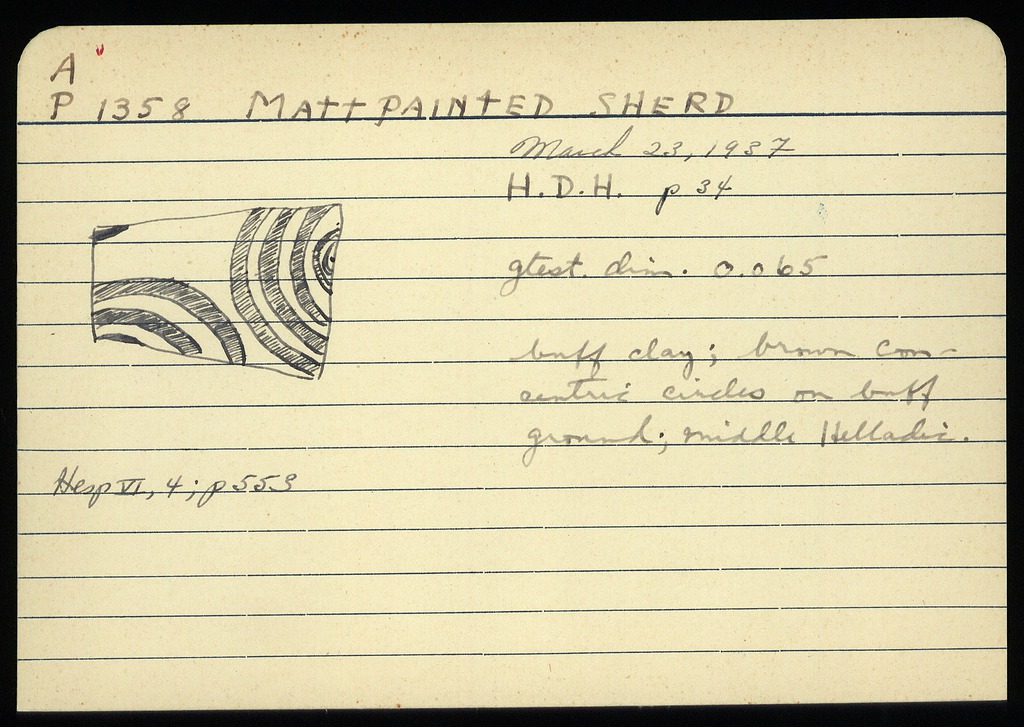 A
P 1358 MATT PAINTED SHERD
March 23, 1937
H.D.H. p 34
gtest. dim. 0.065
buff clay; brown con-
centric circles on buff
ground; middle Helladic.
Hesp VI, 4; p 553